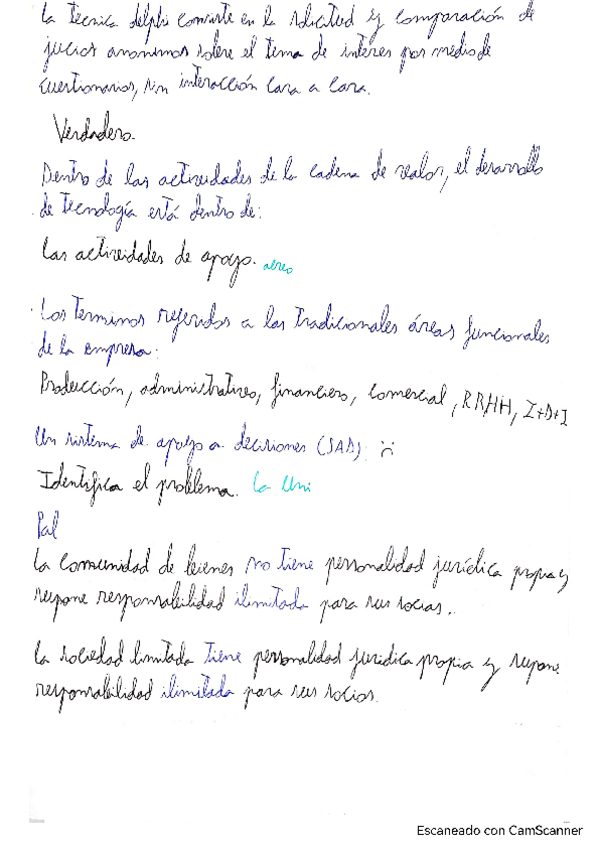 La técnica delphi consiste en la solicitud y comparación de
juicios anonimos sobre el tema de interes por medio de
cuestionarios, sin interacción cara a cara.
Verdadero.
Dentro de las actividades de la cadena de valor, el desarrollo
de tecnología está dentro de:
Las actividades de apoyo. aereo
Los terminos referidos a las tradicionales áreas funcionales
de la empresa:
Producción, administrativo, financiero, comercial, RRHH, I+D+I
Un sistema de apoyo a decisiones (SAD) :
Identifica el problema. La Uni
Pal
La comunidad de bienes no tiene personalidad jurídica propia y
supone responsabilidad ilimitada para sus socias.
La sociedad limitada tiene personalidad juridica propia y supone
responsabilidad ilimitada para sus socios.
Escaneado con CamScanner